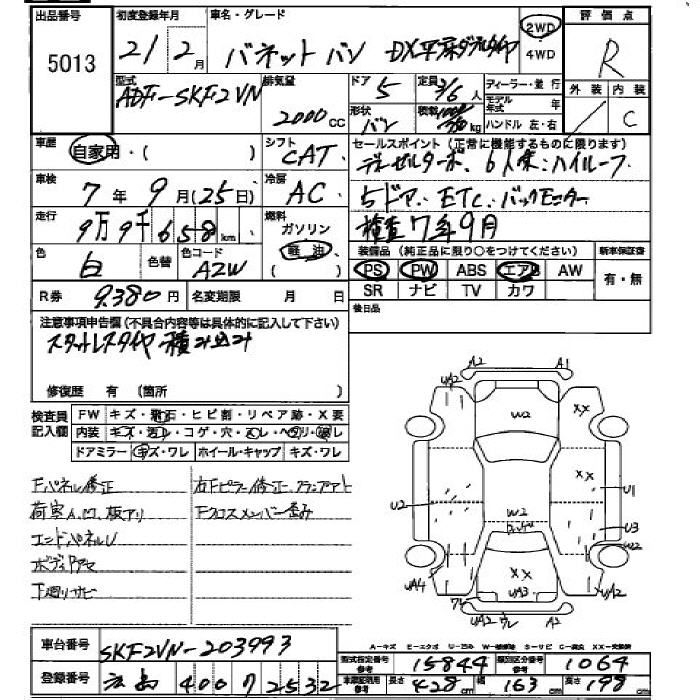 出品番号 初度登録年月 車名・グレード 評価点
5013 21 2月 バネットバン DX平床ダブルタイヤ 2WD・4WD R
型式 排気量 ドア 定員 ディーラー・並行 外装 内装
ADF-SKF2VN 2000cc 5 3/6人 モデル年式 年 / C
形状 バン 積載 kg ハンドル 左・右
車歴 自家用・( ) シフト CAT セールスポイント(正常に機能するものに限ります)
ディーゼルターボ、6人乗、ハイルーフ
車検 7年9月(25日) 冷房 AC 5ドア、ETC、バックモニター
走行 9万9千658km 燃料 ガソリン 軽油 検査7年9月
色 白 色替 色コード A2W 装備品(純正品に限り○をつけてください) 新車保証書
PS PW ABS エアB AW 有・無
R券 9.380円 名変期限 月 日 SR ナビ TV カワ
後日品
注意事項申告欄(不具合内容等は具体的に記入して下さい)
スタットレスタイヤ積み込み
修復歴 有(箇所 )
検査員記入欄 FW キズ・飛石・ヒビ割・リペア跡・X要
内装 キズ・汚レ・コゲ・穴・スレ・ヘタリ・破レ
ドアミラー キズ・ワレ ホイール・キャップ キズ・ワレ
Fパネル修正 右Fピラー修正、
荷室 板アリ Fクロスメンバー歪み
エンドパネルU
ボディ
下廻りサビ
A2 A1
UA2 W2 XX
XX
U2 U1
W2 U3
W2
XX
UA4 UA3 UA2
UA2 A2
A-キズ E-エクボ U-凹み W-補修跡 S-サビ C-腐食 XX-交換済
車台番号 SKF2VN-203993
型式指定番号 参考 15844 類別区分番号 参考 1064
登録番号 400 2532 車庫証明用 参考 長さ 428cm 幅 163cm 高さ 198cm